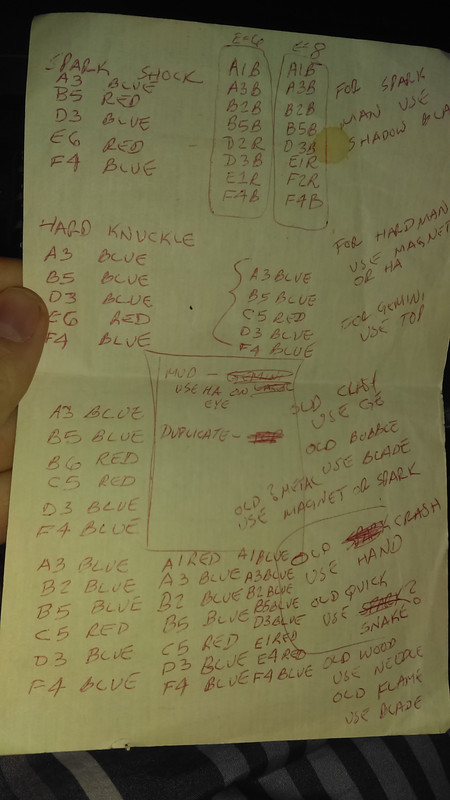 SPARK SHOCK
A3 BLUE
B5 RED
D3 BLUE
E6 RED
F4 BLUE
E=6
A1B
A3B
B2B
B5B
D2R
D3B
E1R
F4B
E=8
A1B
A3B
B2B
B5B
D3B
E1R
F2R
F4B
FOR SPARK
MAN USE
SHADOW BLA
HARD KNUCKLE
A3 BLUE
B5 BLUE
D3 BLUE
E6 RED
F4 BLUE
A3 BLUE
B5 BLUE
C5 RED
D3 BLUE
F4 BLUE
FOR HARDMAN
USE MAGNET
OR HA
FOR GEMINI
USE TOP
MUD -
USE HA ON
EYE
DUPLICATE -
A3 BLUE
B5 BLUE
B6 RED
C5 RED
D3 BLUE
F4 BLUE
OLD CLAY
USE GE
OLD BUBBLE
USE BLADE
OLD METAL
USE MAGNET OR SPARK
A3 BLUE
B2 BLUE
B5 BLUE
C5 RED
D3 BLUE
F4 BLUE
A1 RED
A3 BLUE
B2 BLUE
B5 BLUE
C5 RED
D3 BLUE
F4 BLUE
A1 BLUE
A3 BLUE
B2 BLUE
B5 BLUE
D3 BLUE
E1 RED
E4 RED
F4 BLUE
OLD CRASH
USE HAND
OLD QUICK
USE
SNAKE?
OLD WOOD
USE NEEDLE
OLD FLAME
USE BLADE